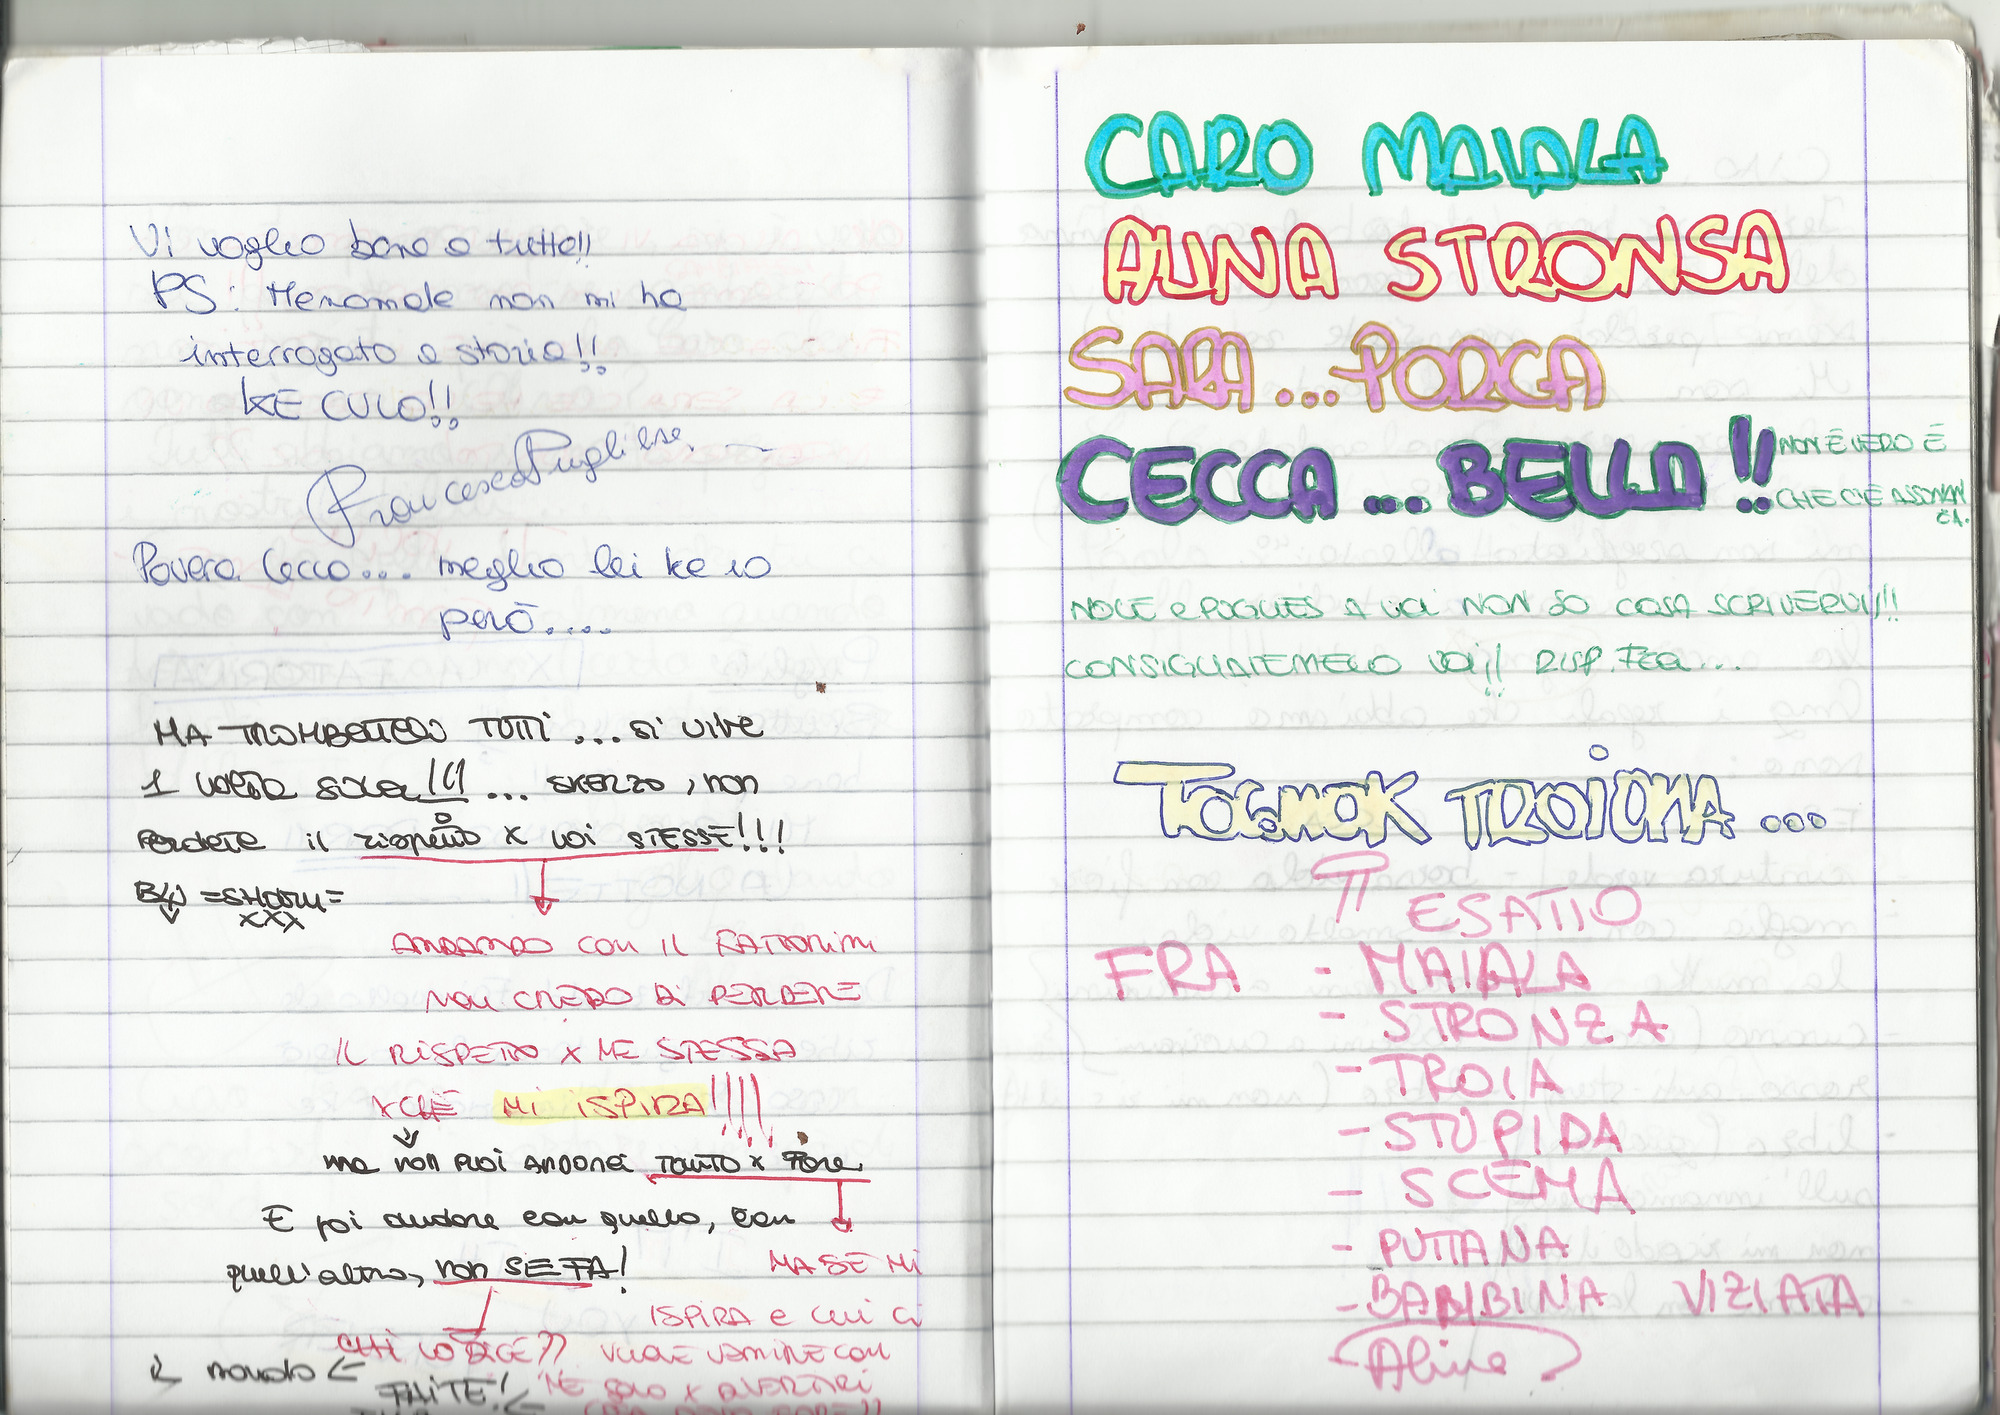 Vi voglio bene a tutte!!
PS: Menomale non mi ha
interrogato a storia!!
KE CULO!!
Francesca Pugliese
Povera Cecca... meglio lei ke io
però....
MA TROMBATEVO TUTTI ... SI VIVE
1 VOLTA SOLA!!! ... SKERZO, non
PERDETE il rispetto x voi STESSE!!!
By =SHARM=
xxx
ANDANDO CON IL FATTORINI
NON CREDO DI PERDERE
IL RISPETTO x ME STESSA
xCHÉ MI ISPIRA!!!!
ma non puoi andarci TANTO x FARE
E poi andare con quello, con
quell'altro, non SE FA!
MA SE MI
ISPIRA e lui ci
CHI LO DICE?? VUOLE VENIRE CON
mondo
FALITE! ME SOLO x DIVERTIRCI
CARO MAIALA
ALINA STRONSA
SARA ... PORCA
CECCA ... BELLA !!
NON È VERO È
CHE C'È ASSONAN
ZA.
NOCE e POGUES A VOI NON SO COSA SCRIVERVI!!!
CONSIGLIATEMELO VOI!! RISP. FCA...
TOGMOK TROIONA ...
TI ESATTO
FRA - MAIALA
- STRONZA
- TROIA
- STUPIDA
- SCEMA
- PUTTANA
- BABIBINA VIZIATA
Aline